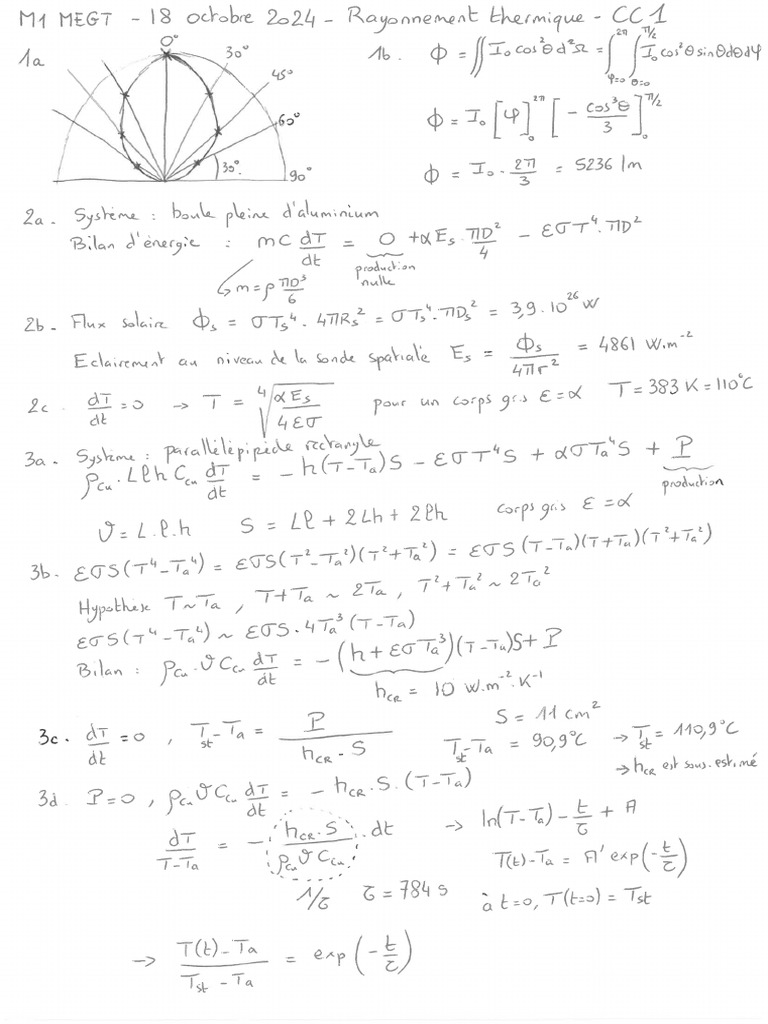 M1 MEGT - 18 octobre 2024 - Rayonnement thermique - CC1
1a
0°
30°
45°
60°
30°
90°
1b. Φ = ∬ I₀ cos²θ d²Ω = ∫_{φ=0}^{2π} ∫_{θ=0}^{π/2} I₀ cos²θ sinθ dθ dφ
Φ = I₀ [φ]₀^{2π} [- cos³θ / 3]₀^{π/2}
Φ = I₀ · 2π/3 = 5236 lm
2a. Système : boule pleine d'aluminium
Bilan d'énergie : mC dT/dt = 0 + αE_s · πD²/4 - εσT⁴ · πD²
production nulle
↳ m = ρ πD³/6
2b. Flux solaire Φ_s = σT_s⁴ · 4πR_s² = σT_s⁴ · πD_s² = 3,9 · 10²⁶ W
Eclairement au niveau de la sonde spatiale E_s = Φ_s / 4πr² = 4861 W.m⁻²
2c. dT/dt = 0 → T = ⁴√(αE_s / 4εσ) pour un corps gris ε = α T = 383 K = 110°C
3a. Système : parallélépipède rectangle
ρ_cu · Llh C_cu dT/dt = - h(T-T_a)S - εσT⁴S + ασT_a⁴S + P
production
𝒱 = L.l.h S = Ll + 2Lh + 2lh corps gris ε = α
3b. εσS(T⁴-T_a⁴) = εσS(T²-T_a²)(T²+T_a²) = εσS(T-T_a)(T+T_a)(T²+T_a²)
Hypothèse T ~ T_a , T+T_a ~ 2T_a , T²+T_a² ~ 2T_0²
εσS(T⁴-T_a⁴) ~ εσS·4T_a³(T-T_a)
Bilan : ρ_cu · 𝒱 C_cu dT/dt = - (h + εσT_a³)(T-T_a)S + P
h_CR = 10 W.m⁻².K⁻¹
3c. dT/dt = 0 , T_st - T_a = P / h_CR · S
S = 11 cm²
T_st - T_a = 90,9°C → T_st = 110,9°C
→ h_CR est sous-estimé
3d. P = 0 , ρ_cu 𝒱 C_cu dT/dt = - h_CR · S · (T-T_a)
dT / T-T_a = - h_CR · S / ρ_cu 𝒱 C_cu · dt → ln(T-T_a) - t/τ + A
1/τ τ = 784 s
T(t)-T_a = A' exp(-t/τ)
à t=0, T(t=0) = T_st
→ T(t)-T_a / T_st-T_a = exp(-t/τ)